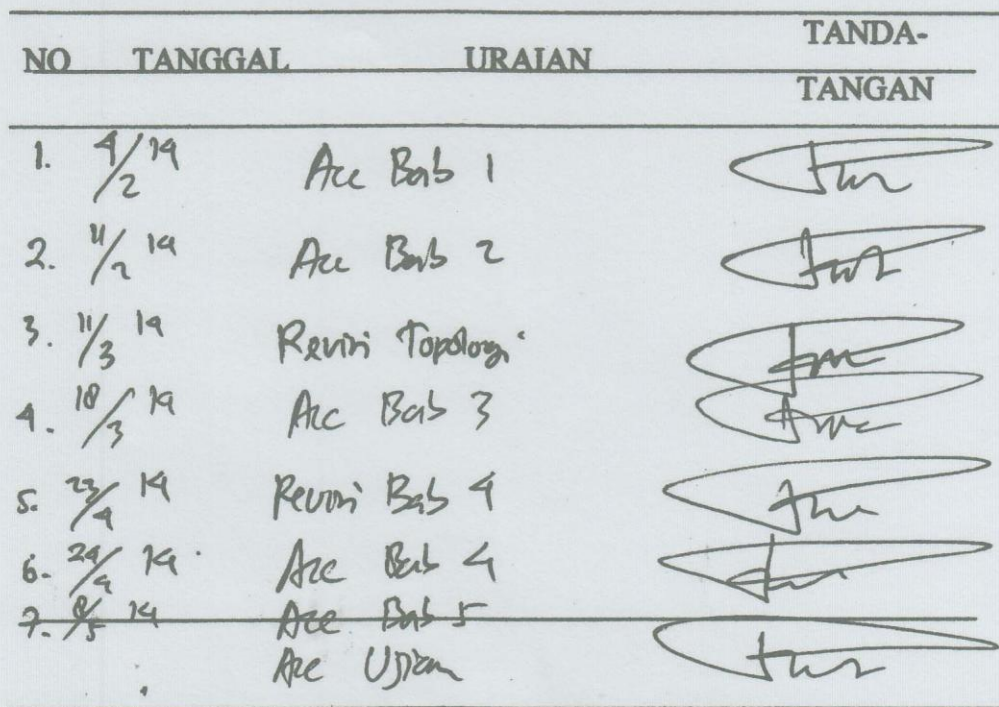 NO TANGGAL URAIAN TANDA-
TANGAN
1. 4/2 14 Acc Bab 1
2. 11/2 14 Acc Bab 2
3. 11/3 14 Revisi Topologi
4. 18/3 14 Acc Bab 3
5. 23/4 14 Revisi Bab 4
6. 24/4 14 Acc Bab 4
7. 8/5 14 Acc Bab 5
Acc Ujian